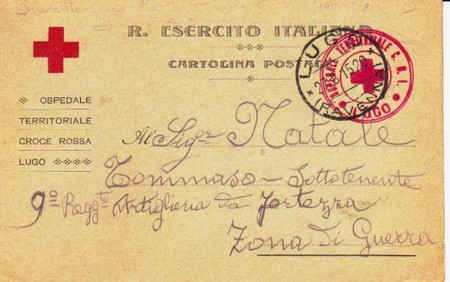 R. ESERCITO ITALIANO
CARTOLINA POSTALE
OSPEDALE
TERRITORIALE
CROCE ROSSA
LUGO
LUGO
(RAVENNA)
OSPEDALE TERRITORIALE C. R. I.
LUGO
Al Sigr Natale
Tommaso - Sottotenente
9no Reggto Artiglieria da Fortezza
Zona di Guerra